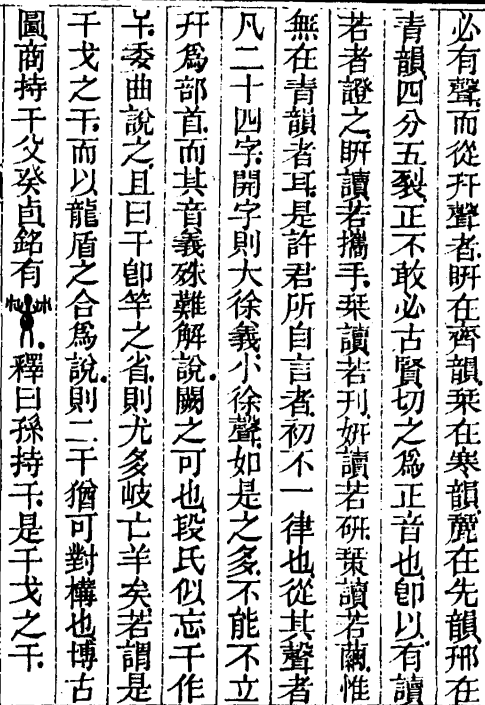 必有聲而從幵聲者䀘在齊韻栞在寒韻麉在先韻邢在
青韻四分五裂正不敢必古賢切之爲正音也卽以有讀
若者證之䀘讀若攜手栞讀若刊姸讀若硏䅍讀若繭惟
無在青韻者耳是許君所自言者初不一律也從其聲者
凡二十四字開字則大徐義小徐聲如是之多不能不立
幵爲部首而其音義殊難解說闕之可也段氏似忘干作
𢆉委曲說之且曰干卽竿之省則尤多岐亡羊矣若謂是
干戈之干而以龍盾之合爲說則二干猶可對構也博古
圖商持干父癸卣銘有釋曰孫持干是干戈之干